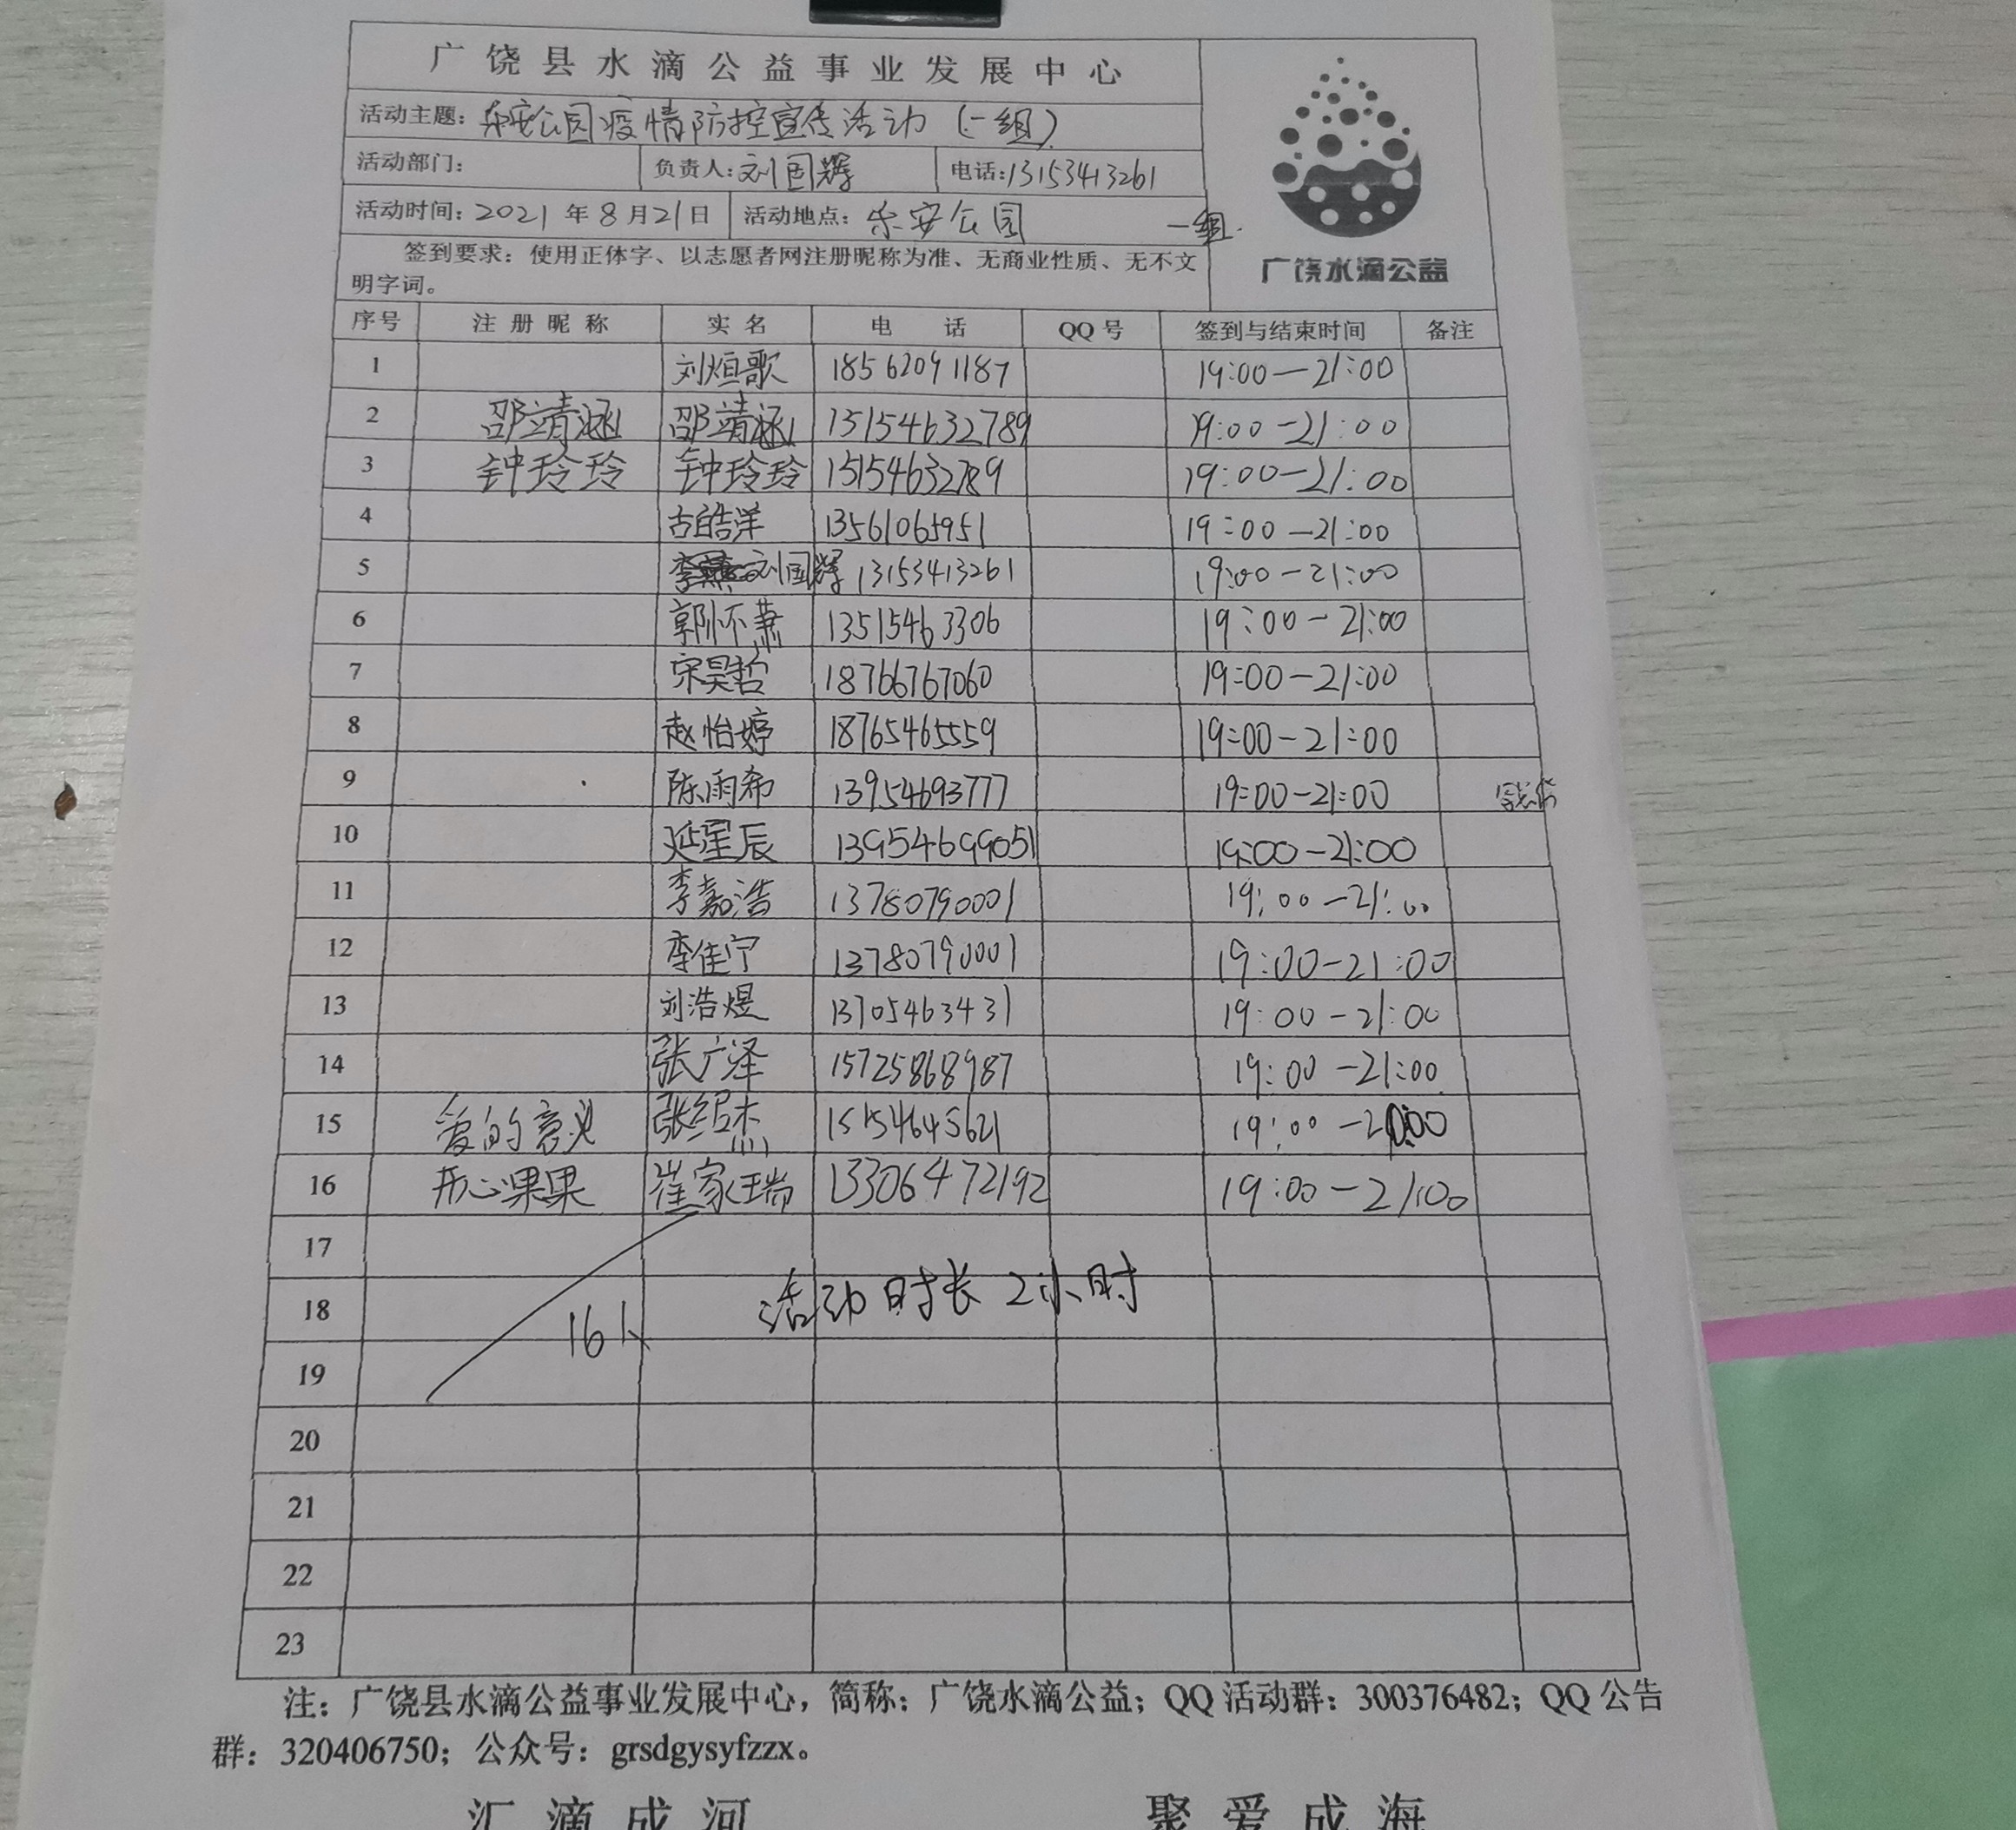 广饶县水滴公益事业发展中心
活动主题：乐安公园疫情防控宣传活动（一组）
活动部门： 负责人：刘国辉 电话：13153413261
活动时间：2021年8月21日 活动地点：乐安公园 一组.
签到要求：使用正体字、以志愿者网注册昵称为准、无商业性质、无不文
明字词。
广饶水滴公益
序号 注册昵称 实名 电话 QQ号 签到与结束时间 备注
1 刘烜歌 18562091187 19:00—21:00
2 邵靖涵 邵靖涵 15154632789 19:00-21:00
3 钟玲玲 钟玲玲 15154632789 19:00-21:00
4 古皓洋 13561065951 19:00—21:00
5 刘国辉 13153413261 19:00-21:00
6 郭怀萧 13515463306 19:00-21:00
7 宋昊哲 18766767060 19:00-21:00
8 赵怡婷 18765465559 19:00-21:00
9 陈雨希 13954693777 19:00-21:00
10 延星辰 13954699051 19:00-21:00
11 李嘉浩 13780790001 19:00-21:00
12 李佳宁 13780790001 19:00-21:00
13 刘浩煜 13705463431 19:00-21:00
14 张广泽 15725868987 19:00-21:00
15 爱的意义 张绍杰 15154645621 19:00
16 开心果果 崔家瑞 13306472192 19:00-21:00
17
18 活动时长2小时
16人
19
20
21
22
23
注：广饶县水滴公益事业发展中心，简称：广饶水滴公益；QQ活动群：300376482；QQ公告
群：320406750；公众号：grsdgysyfzzx。
汇滴成河 聚爱成海